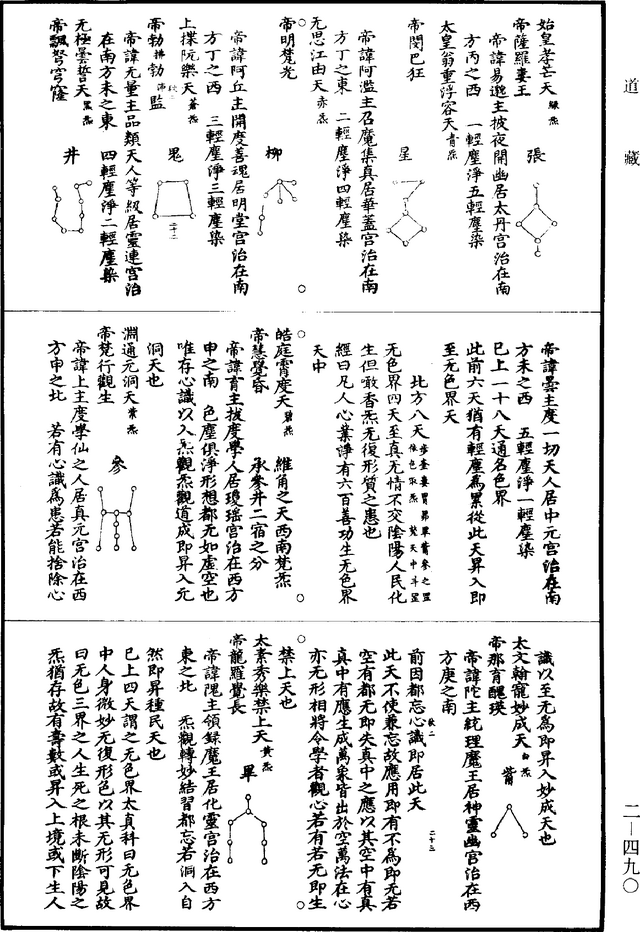 道藏
始皇孝芒天 緑炁
帝薩羅婁王
張
帝諱易邈主披夜開幽居太丹宮治在南
方丙之西 一輕塵淨五輕塵染
太皇翁重浮容天 青炁
帝閔巴狂
星
帝諱阿濫主召魔集真居華蓋宮治在南
方丁之東 二輕塵淨四輕塵染
无思江由天 赤炁
帝明梵光
柳
帝諱阿丘主開度善魂居明堂宮治在南
方丁之西 三輕塵淨三輕塵染
上揲阮樂天 蒼炁
帝勃勃監
鬼
帝諱无量主品類天人等級居靈連宮治
在南方未之東 四輕塵淨二輕塵染
无極曇誓天 黑炁
帝飄弩穹窿
井
帝諱雲主度一切天人居中元宮治在南
方未之西 五輕塵淨一輕塵染
已上一十八天通名色界
此前六天猶有輕塵為累從此天昇入即
至无色界天
北方八天
无色界四天至真无情不交陰陽人民化
生但噉香炁无復形質之患也
經曰凡人心業諍有六百善功生无色界
天中
皓庭霄度天 碧炁 維角之天西南梵炁
帝慧覺昏 承參井二宿之分
帝諱育主拔度學人居瓊瑶宮治在西方
申之南 色塵俱淨形想都无如虛空也
唯存心識以入炁觀炁觀道成即昇入元
洞天也
淵通元洞天 紫炁
帝梵行觀生
參
帝諱上主度學仙之人居真元宮治在西
方申之北 若有心識為患若能捨除心
識以至无為即昇入妙成天也
太文翰寵妙成天 白炁
帝那育醜瑛
觜
帝諱陀主統理魔王居神靈幽宮治在西
方庚之南
前因都忘心識即居此天
此天不使兼忘故應用即有不為即无若
空有都无即失真中之應以其空中有真
真中有應生成萬象皆出於空萬法在心
亦无形相將令學者觀心若有若无即生
禁上天也
太素秀樂禁上天 黄炁
帝龍羅覺長
畢
帝諱隗主領錄魔王居化靈宮治在西方
東之北 炁觀轉妙結習都忘若洞入自
然即昇種民天也
已上四天謂之无色界太真科曰无色界
中人身微妙无復形色以其无形可見故
曰无色三界之人生死之根未斷陰陽之
炁猶存故有壽數或昇入上境或下生人
二—四九〇